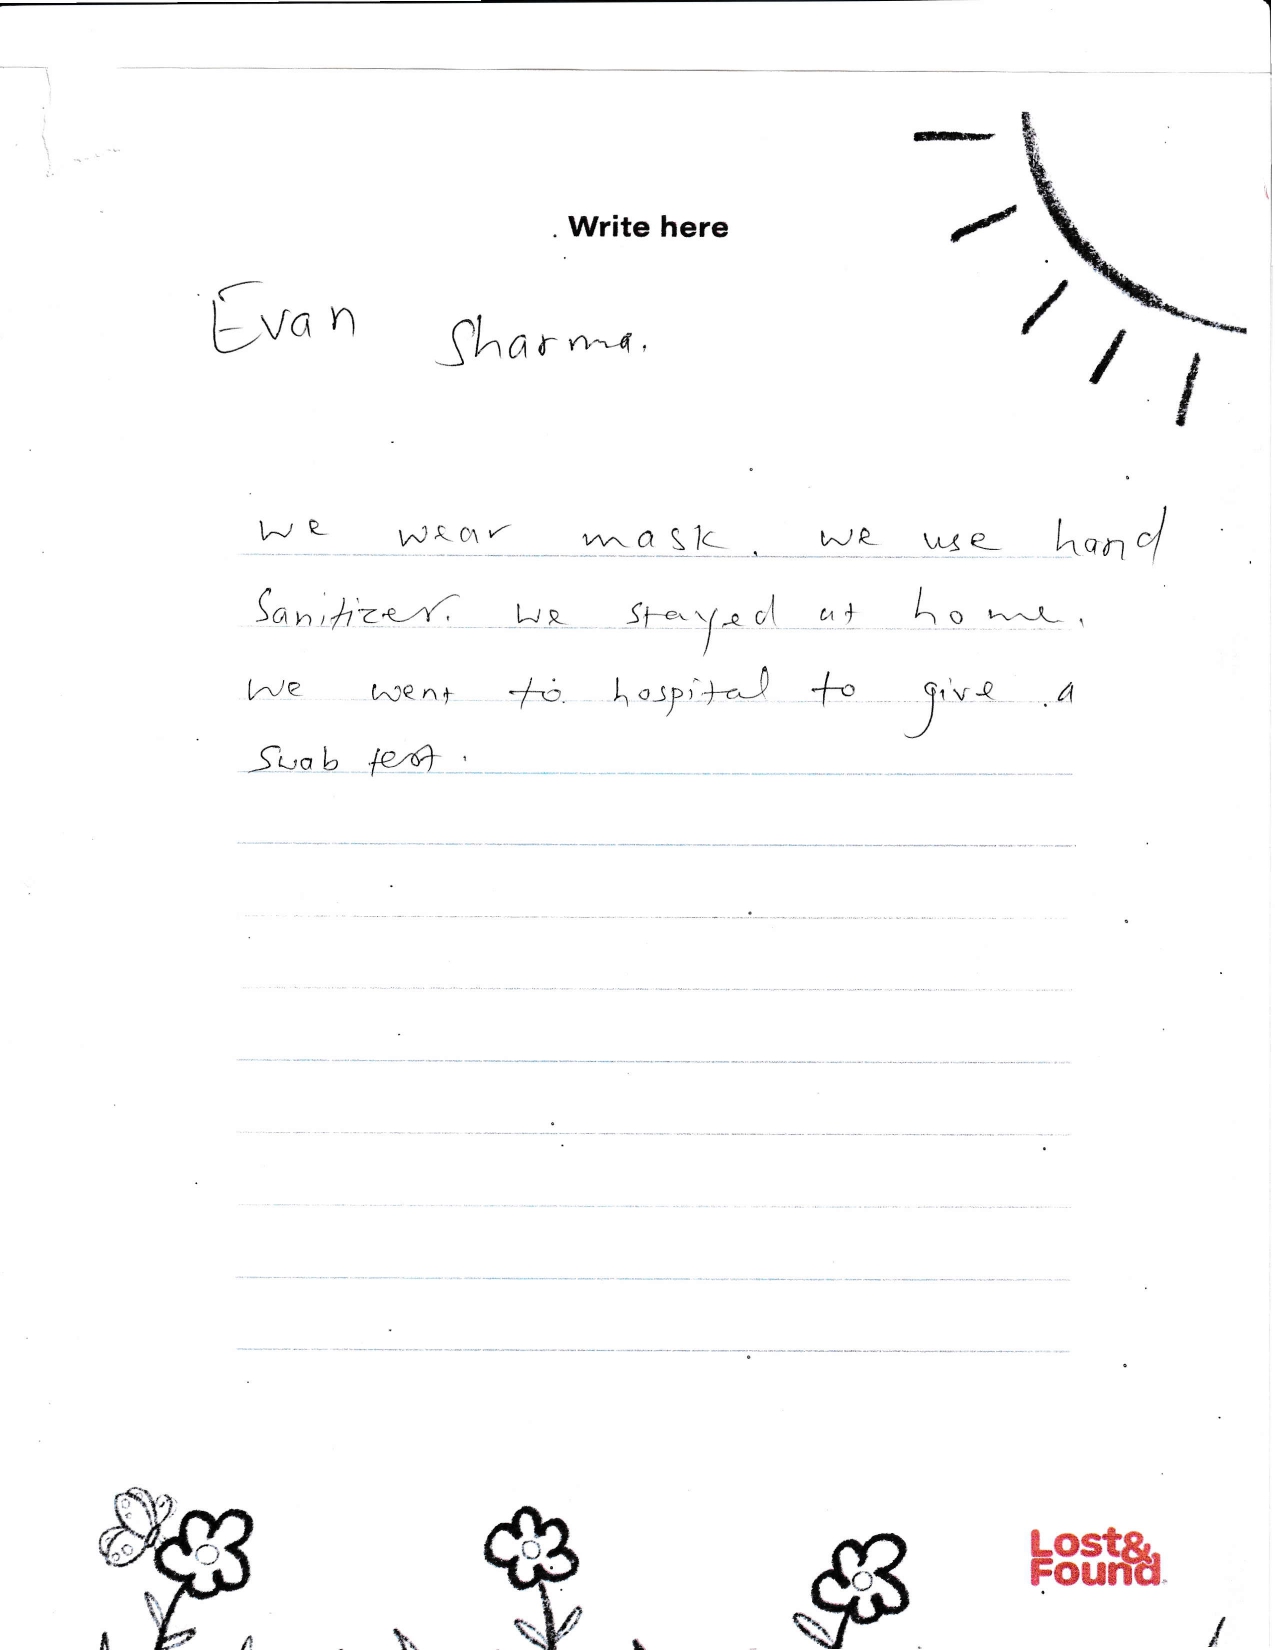 Write here
Evan Sharma.
we wear mask. we use hand
Sanitizer. we stayed at home.
we went to hospital to give a
Swab test.
Lost&
Found